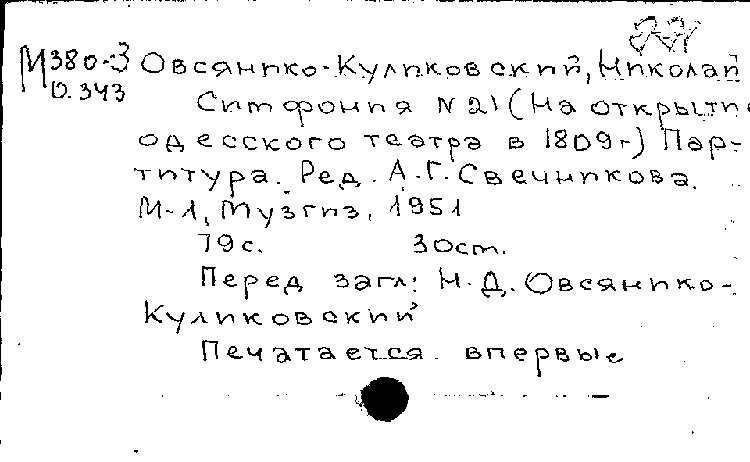 М380-3 Овсянико-Куликовский, Николай
О.343
Симфония N 21 (На открытие
одесского театра в 1809г.) Пар-
титура. Ред. А.Г. Свечникова.
М-Л, Музгиз, 1951
79с. 30см.
Перед загл: Н.Д. Овсянико-
Куликовский
Печатается впервые